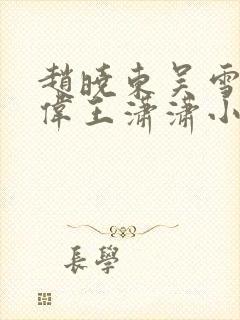 趙曉東吴雪
偉王瀟瀟小
長學